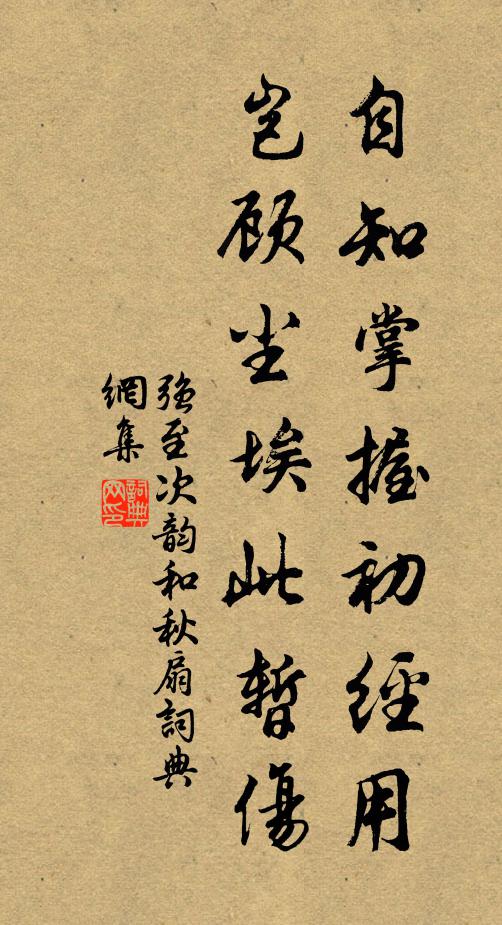 自知掌握初經用
岂顾尘埃此暫傷
强至次韵和秋扇詞典
網集
詞典
网印